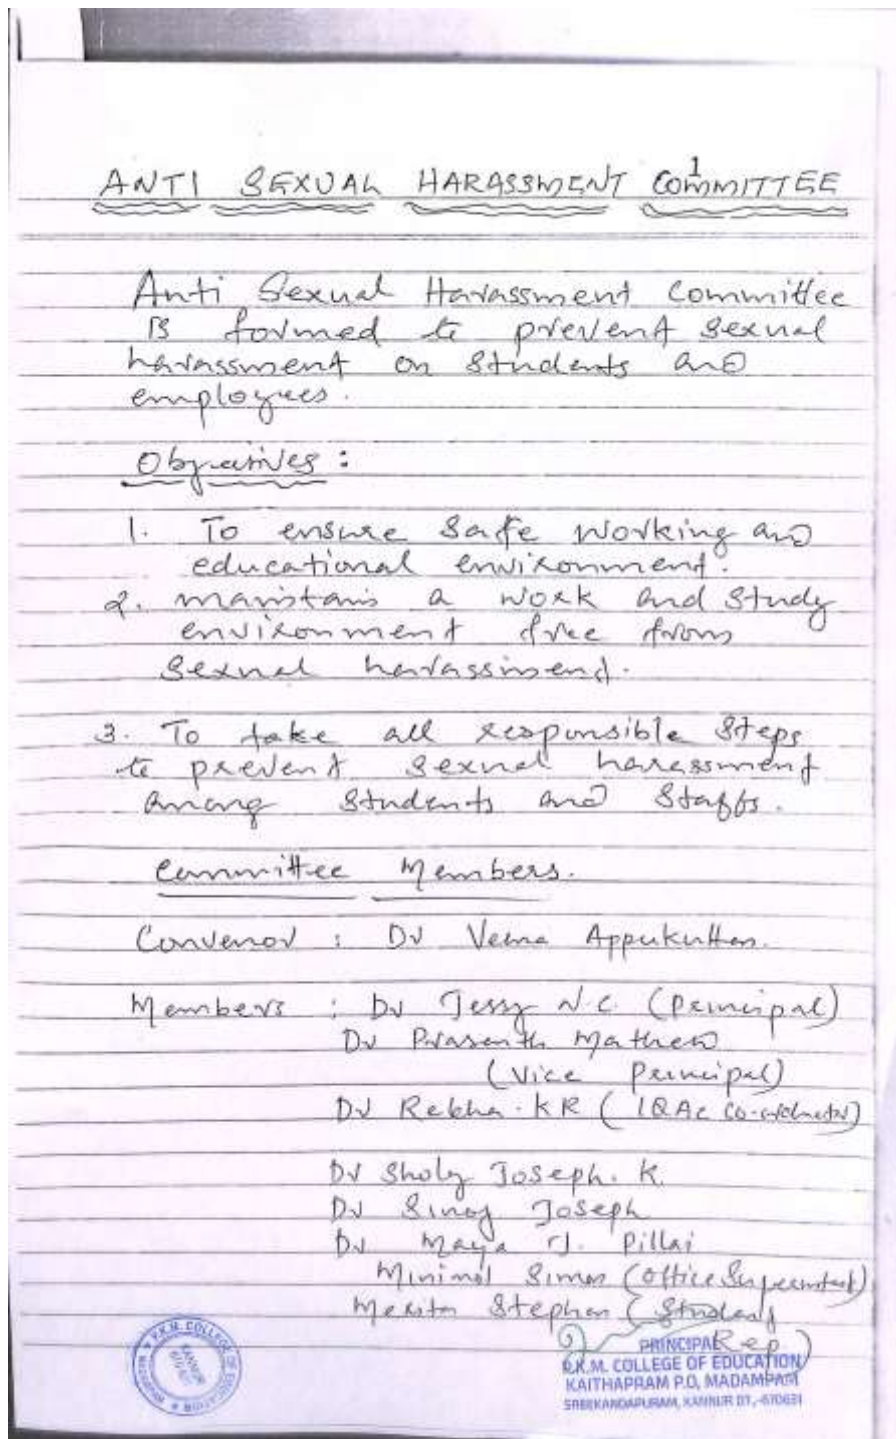 1
ANTI SEXUAL HARASSMENT COMMITTEE
Anti Sexual Harassment Committee
is formed to prevent sexual
harassment on students and
employees.
Objectives :
1. To ensure safe working and
educational environment.
2. maintain a work and study
environment free from
sexual harassment.
3. To take all responsible steps
to prevent sexual harassment
among students and staffs.
Committee Members.
Convenor : Dr Veena Appukuttan.
Members : Dr Jessy N.C. (Principal)
Dr Prasanth Mathew
(Vice Principal)
Dr Rekha. KR ( IQAC Co-ordinator)
Dr Sholy Joseph. K.
Dr Sinoj Joseph
Dr Maya J. Pillai
Minimol Simon (Office Superintendent)
Stephen ( Student
Rep)
PRINCIPAL
P.K.M. COLLEGE OF EDUCATION
KAITHAPRAM P.O, MADAMPAM
SREEKANDAPURAM, KANNUR DT,-670631
P.K.M. COLLEGE OF EDUCATION
MADAMPAM
KANNUR